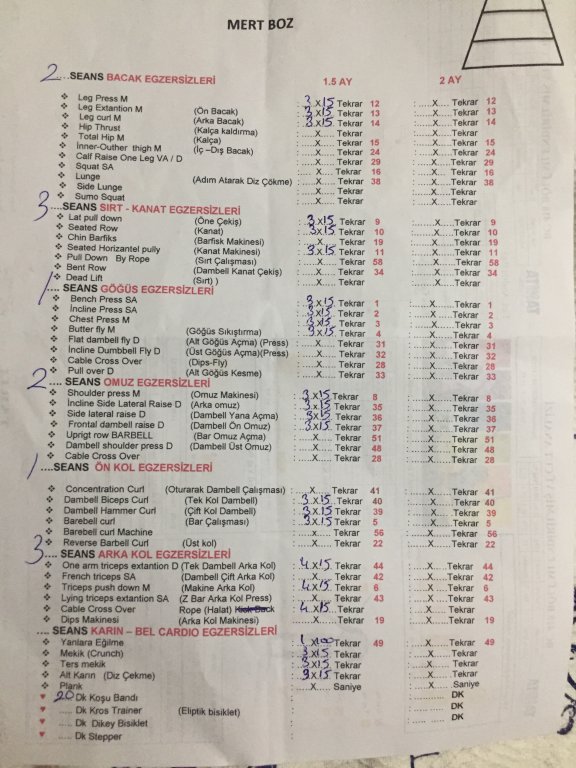 MERT BOZ
2....SEANS BACAK EGZERSİZLERİ 1.5 AY 2 AY
Leg Press M : 3 X 15 Tekrar 12 :.....X....Tekrar 12
Leg Extantion M (Ön Bacak) : 3 X 15 Tekrar 13 :.....X....Tekrar 13
Leg curl M (Arka Bacak) : 3 X 15 Tekrar 14 :.....X....Tekrar 14
Hip Thrust (Kalça kaldırma) :.....X..... Tekrar :.....X....Tekrar
Total Hip M (Kalça) :.....X..... Tekrar 15 :.....X....Tekrar 15
İnner-Outher thigh M (İç –Dış Bacak) :.....X..... Tekrar 24 :.....X....Tekrar 24
Calf Raise One Leg VA / D :.....X..... Tekrar 29 :.....X....Tekrar 29
Squat SA :.....X..... Tekrar 16 :.....X....Tekrar 16
Lunge (Adım Atarak Diz Çökme) :.....X..... Tekrar 38 :.....X....Tekrar 38
Side Lunge :.....X..... Tekrar :.....X....Tekrar
Sumo Squat :.....X..... Tekrar :.....X....Tekrar
3....SEANS SIRT - KANAT EGZERSİZLERİ
Lat pull down (Öne Çekiş) : 3 X 15 Tekrar 9 :.....X....Tekrar 9
Seated Row (Kanat) : 3 X 15 Tekrar 10 :.....X....Tekrar 10
Chin Barfiks (Barfisk Makinesi) :.....X..... Tekrar 19 :.....X....Tekrar 19
Seated Horizantel pully (Kanat Makinesi) : 3 X 15 Tekrar 11 :.....X....Tekrar 11
Pull Down By Rope (Sırt Çalışması) :.....X..... Tekrar 58 :.....X....Tekrar 58
Bent Row (Dambell Kanat Çekiş) :.....X..... Tekrar 34 :.....X....Tekrar 34
Dead Lift (Sırt) ) :.....X..... Tekrar :.....X....Tekrar
1....SEANS GÖĞÜS EGZERSİZLERİ
Bench Press SA : 3 X 15 Tekrar 1 :.....X....Tekrar 1
İncline Press SA : 3 X 15 Tekrar 2 :.....X....Tekrar 2
Chest Press M : 3 X 15 Tekrar 3 :.....X....Tekrar 3
Butter fly M (Göğüs Sıkıştırma) : 3 X 15 Tekrar 4 :.....X....Tekrar 4
Flat dambell fly D (Alt Göğüs Açma) (Press) :.....X..... Tekrar 31 :.....X....Tekrar 31
İncline Dumbbell Fly D (Üst Göğüs Açma)(Press) :.....X..... Tekrar 32 :.....X....Tekrar 32
Cable Cross Over (Dips-Fly) :.....X..... Tekrar 28 :.....X....Tekrar 28
Pull over D (Alt Göğüs Kesme) :.....X..... Tekrar 33 :.....X....Tekrar 33
2.... SEANS OMUZ EGZERSİZLERİ
Shoulder press M (Omuz Makinesi) : 3 X 15 Tekrar 8 :.....X....Tekrar 8
İncline Side Lateral Raise D (Arka omuz) : 3 X 15 Tekrar 35 :.....X....Tekrar 35
Side lateral raise D (Dambell Yana Açma) : 3 X 15 Tekrar 36 :.....X....Tekrar 36
Frontal dambell raise D (Dambell Ön Omuz) : 3 X 15 Tekrar 37 :.....X....Tekrar 37
Uprigt row BARBELL (Bar Omuz Açma) :.....X..... Tekrar 51 :.....X....Tekrar 51
Dambell shoulder press D (Dambell Üst Omuz) :.....X..... Tekrar 48 :.....X....Tekrar 48
Cable Cross Over :.....X..... Tekrar 28 :.....X....Tekrar 28
1....SEANS ÖN KOL EGZERSİZLERİ
Concentration Curl (Oturarak Dambell Çalışması) :.....X..... Tekrar 41 :.....X....Tekrar 41
Dambell Biceps Curl (Tek Kol Dambell) : 3 X 15 Tekrar 40 :.....X....Tekrar 40
Dambell Hammer Curl (Çift Kol Dambell) : 3 X 15 Tekrar 39 :.....X....Tekrar 39
Barebell curl (Bar Çalışması) : 3 X 15 Tekrar 5 :.....X....Tekrar 5
Barebell curl Machine :.....X..... Tekrar 56 :.....X....Tekrar 56
Reverse Barbell Curl (Üst kol) :.....X..... Tekrar 22 :.....X....Tekrar 22
3.... SEANS ARKA KOL EGZERSİZLERİ
One arm triceps extantion D (Tek Dambell Arka Kol) : 4 X 15 Tekrar 44 :.....X....Tekrar 44
French triceps SA (Dambell Çift Arka Kol) :.....X..... Tekrar 42 :.....X....Tekrar 42
Triceps push down M (Makine Arka Kol) : 4 X 15 Tekrar 6 :.....X....Tekrar 6
Lying triceps extantion SA (Z Bar Arka Kol Press) :.....X..... Tekrar 43 :.....X....Tekrar 43
Cable Cross Over Rope (Halat) Kick Back : 4 X 15 Tekrar :.....X....Tekrar
Dips Makinesi (Arka Kol Makinesi) :.....X..... Tekrar 19 :.....X....Tekrar 19
.... SEANS KARIN – BEL CARDIO EGZERSİZLERİ
Yanlara Eğilme : 1 X 100 Tekrar 49 :.....X....Tekrar 49
Mekik (Crunch) : 3 X 15 Tekrar :.....X....Tekrar
Ters mekik : 3 X 15 Tekrar :.....X....Tekrar
Alt Karın (Diz Çekme) : 3 X 15 Tekrar :.....X....Tekrar
Plank :.....X..... Saniye :.....X....Saniye
20 Dk Koşu Bandı : ...... ..... DK
..... Dk Kros Trainer (Eliptik bisiklet) : ...... ..... DK
..... Dk Dikey Bisiklet : ...... ..... DK
..... Dk Stepper :